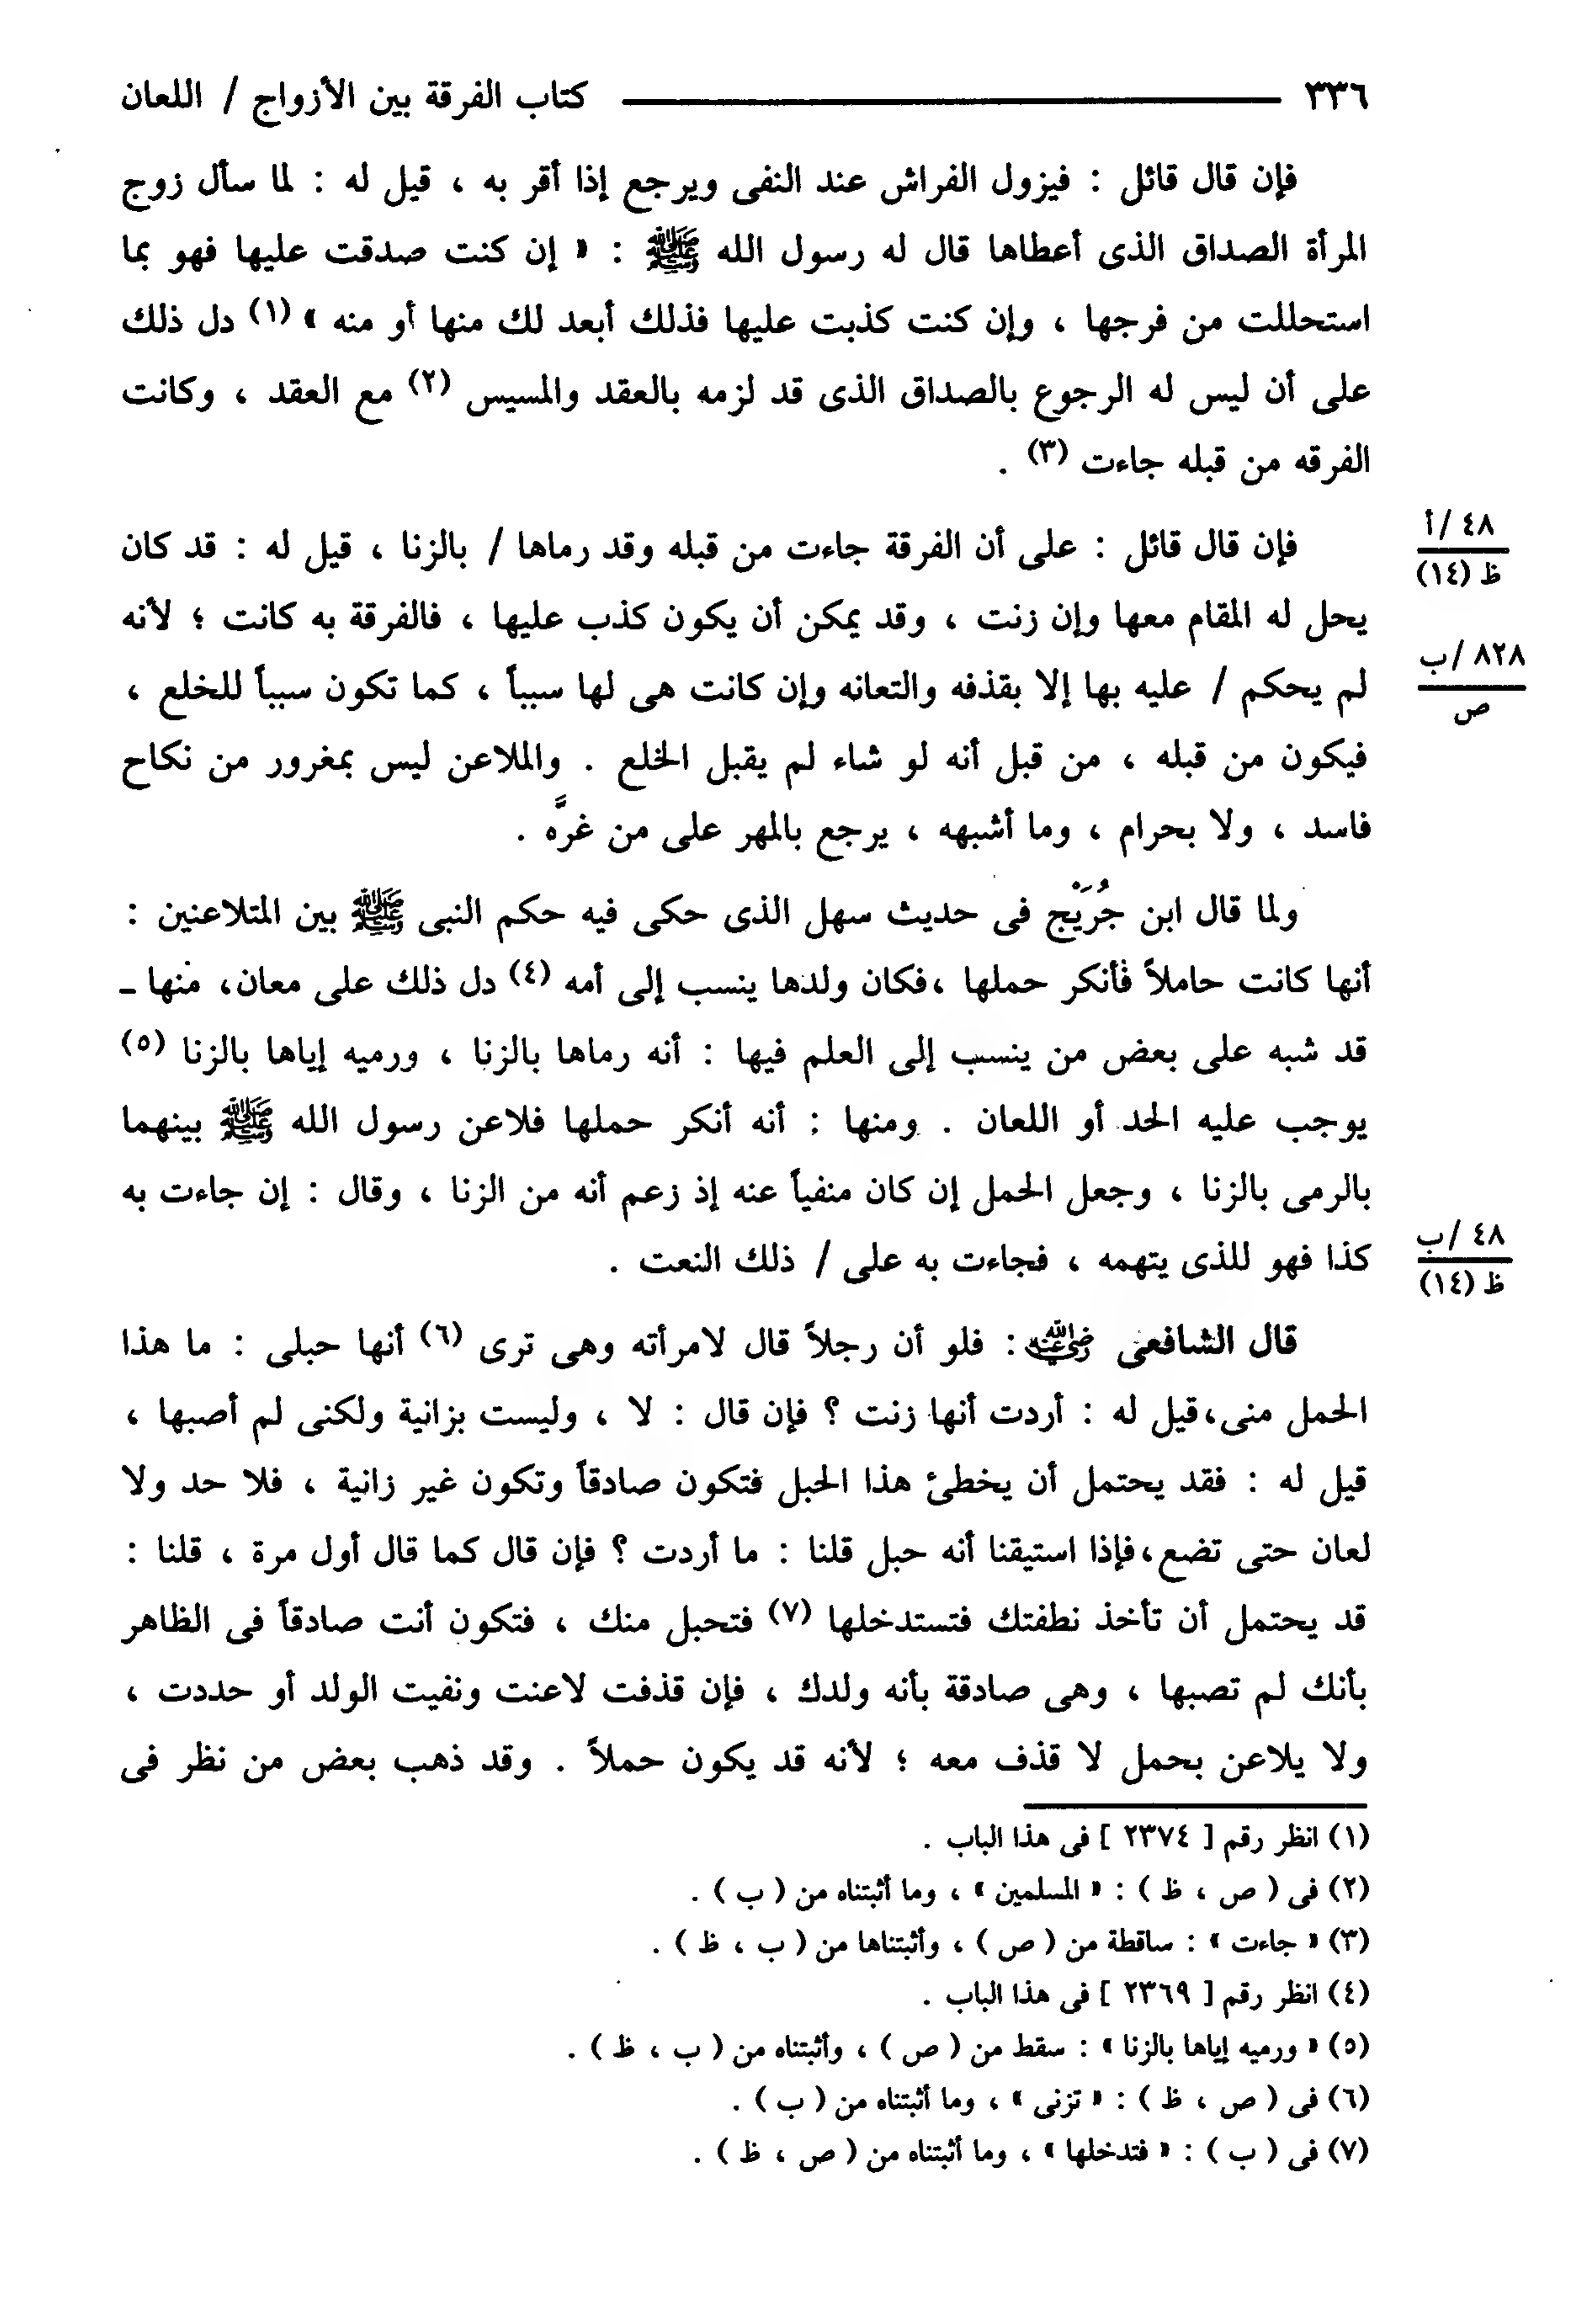 ٣٣٦ ــــــــــــــــــــ كتاب الفرقة بين الأزواج / اللعان
فإن قال قائل : فيزول الفراش عند النفى ويرجع إذا أقر به ، قيل له : لما سأل زوج
المرأة الصداق الذى أعطاها قال له رسول الله ﷺ : « إن كنت صدقت عليها فهو بما
استحللت من فرجها ، وإن كنت كذبت عليها فذلك أبعد لك منها أو منه » (١) دل ذلك
على أن ليس له الرجوع بالصداق الذى قد لزمه بالعقد والمسيس (٢) مع العقد ، وكانت
الفرقه من قبله جاءت (٣) .
فإن قال قائل : على أن الفرقة جاءت من قبله وقد رماها / بالزنا ، قيل له : قد كان
٤٨ /أ
ظ (١٤)
يحل له المقام معها وإن زنت ، وقد يمكن أن يكون كذب عليها ، فالفرقة به كانت ؛ لأنه
لم يحكم / عليه بها إلا بقذفه والتعانه وإن كانت هى لها سبباً ، كما تكون سبباً للخلع ،
٨٢٨ /ب
ص
فيكون من قبله ، من قبل أنه لو شاء لم يقبل الخلع . والملاعن ليس بمغرور من نكاح
فاسد ، ولا بحرام ، وما أشبهه ، يرجع بالمهر على من غرَّه .
ولما قال ابن جُرَيْج فى حديث سهل الذى حكى فيه حكم النبى ﷺ بين المتلاعنين :
أنها كانت حاملاً فأنكر حملها ،فكان ولدها ينسب إلى أمه (٤) دل ذلك على معان، منها ـ
قد شبه على بعض من ينسب إلى العلم فيها : أنه رماها بالزنا ، ورميه إياها بالزنا (٥)
يوجب عليه الحد أو اللعان . ومنها : أنه أنكر حملها فلاعن رسول الله ﷺ بينهما
بالرمى بالزنا ، وجعل الحمل إن كان منفياً عنه إذ زعم أنه من الزنا ، وقال : إن جاءت به
كذا فهو للذى يتهمه ، فجاءت به على / ذلك النعت .
٤٨ /ب
ظ (١٤)
قال الشافعى رضي الله عنه : فلو أن رجلاً قال لامرأته وهى ترى (٦) أنها حبلى : ما هذا
الحمل منى،قيل له : أردت أنها زنت ؟ فإن قال : لا ، وليست بزانية ولكنى لم أصبها ،
قيل له : فقد يحتمل أن يخطئ هذا الحبل فتكون صادقاً وتكون غير زانية ، فلا حد ولا
لعان حتى تضع،فإذا استيقنا أنه حبل قلنا : ما أردت ؟ فإن قال كما قال أول مرة ، قلنا :
قد يحتمل أن تأخذ نطفتك فتستدخلها (٧) فتحبل منك ، فتكون أنت صادقاً فى الظاهر
بأنك لم تصبها ، وهى صادقة بأنه ولدك ، فإن قذفت لاعنت ونفيت الولد أو حددت ،
ولا يلاعن بحمل لا قذف معه ؛ لأنه قد يكون حملاً . وقد ذهب بعض من نظر فى
(١) انظر رقم [ ٢٣٧٤ ] فى هذا الباب .
(٢) فى ( ص ، ظ ) : « المسلمين » ، وما أثبتناه من ( ب ) .
(٣) « جاءت » : ساقطة من ( ص ) ، وأثبتناها من ( ب ، ظ ) .
(٤) انظر رقم [ ٢٣٦٩ ] فى هذا الباب .
(٥) « ورميه إياها بالزنا » : سقط من ( ص ) ، وأثبتناه من ( ب ، ظ ) .
(٦) فى ( ص ، ظ ) : « تزنى » ، وما أثبتناه من ( ب ) .
(٧) فى ( ب ) : « فتدخلها » ، وما أثبتناه من ( ص ، ظ ) .